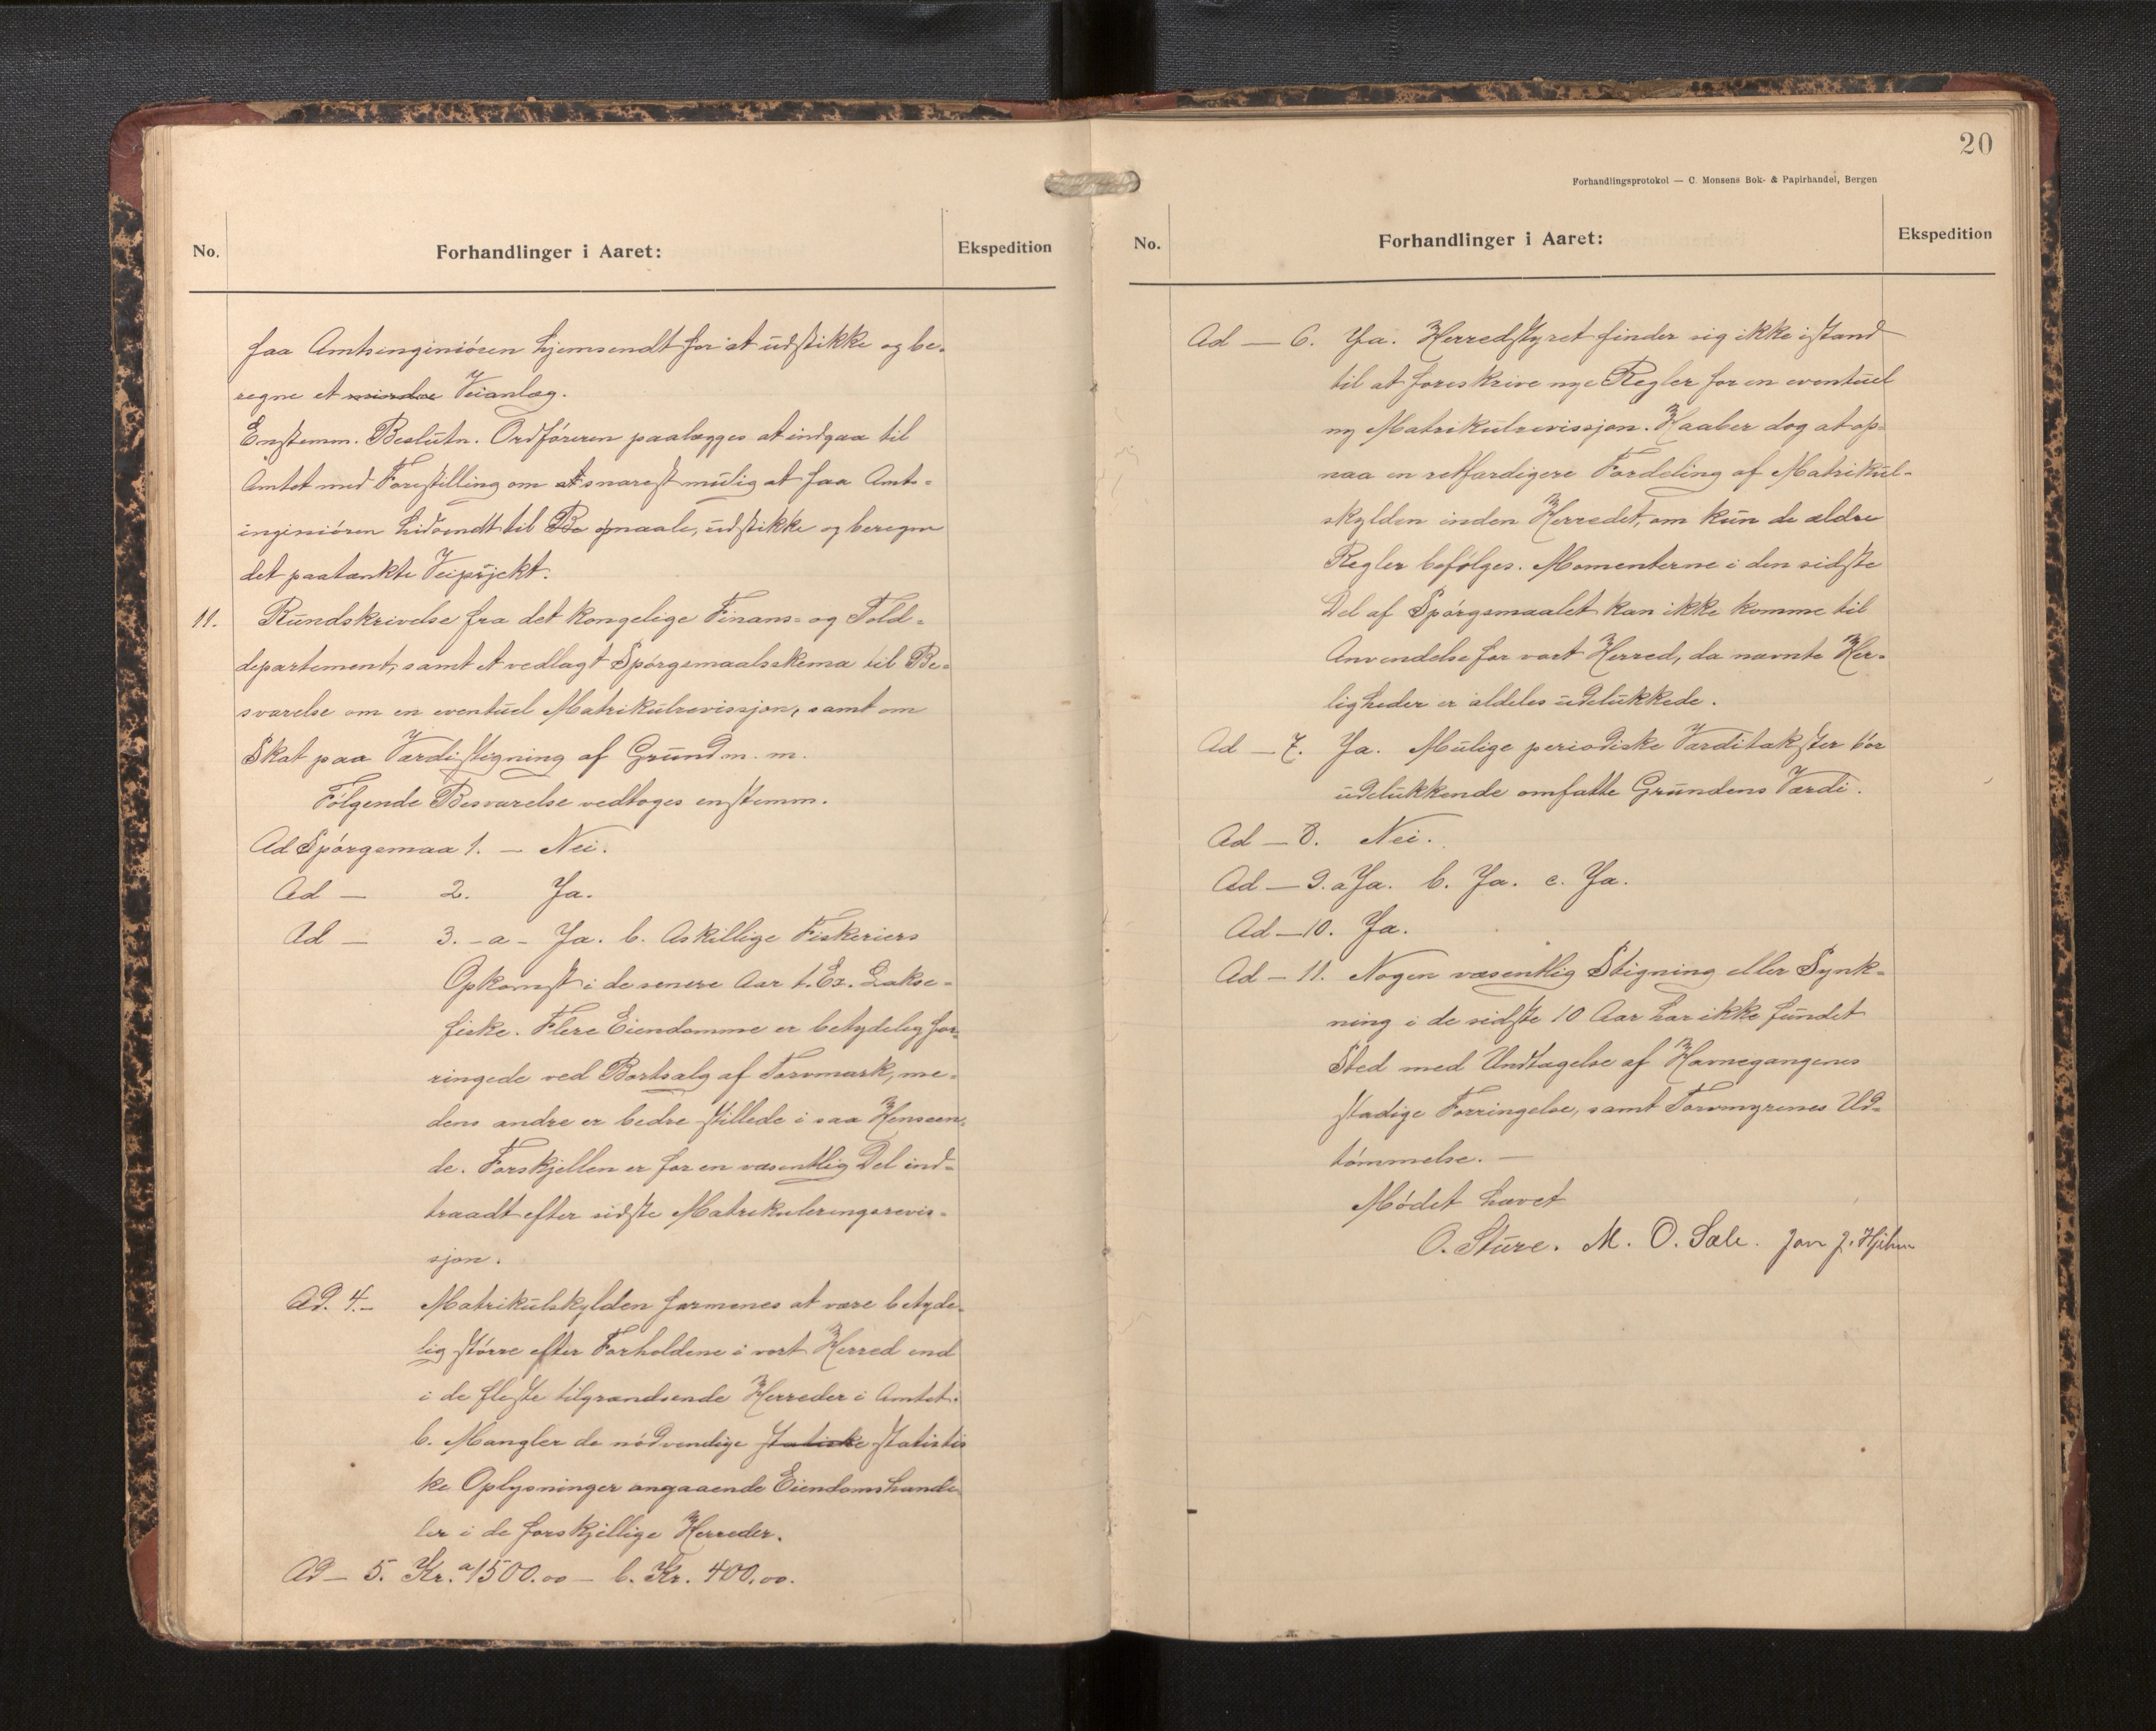 No.
Forhandlinger i Aaret:
Ekspedition
faa Amtsingeniören hjemsendt for at udstikke og be-
regne et mindre Veianlæg.
Enstemm. Beslutn. Ordföreren paalægges at indgaa til
Amtet med Forestilling om at snarest mulig at faa Amts-
ingeniören hidsendt til Be opmaale, udstikke og beregne
det paatænkte Veiprojekt.
11. Rundskrivelse fra det kongelige Finans- og Told-
departement, samt et vedlagt Spörgsmaalsskema til Be-
svarelse om en eventuel Matrikulrevissjon, samt om
Skat paa Værdistigning af Grund m. m.
Fölgende Besvarelse vedtoges enstemm.
Ad Spörgsmaa 1. — Nei.
Ad — 2. Ja.
Ad — 3. - a - Ja. b. Askillige Fiskeriers
Opkomst i de senere Aar t. Ex. Lakse-
fiske. Flere Eiendomme er betydelig for-
ringede ved Bortsalg af Torvmark, me-
dens andre er bedre stillede i saa Henseen-
de. Forskjellen er for en væsentlig Del ind-
traadt efter sidste Matrekuleringsrevis-
sjon.
Ad. 4. - Matrikulskylden formenes at være betyde-
lig större efter Forholdene i vort Herred end
i de fleste tilgrændsende Herreder i Amtet.
b. Mangler de nödvendige statiske statistis
ke Oplysninger angaaende Eiendomshande-
ler i de forskjellige Herreder.
Ad — 5. Kr. a 1500.00 — b. Kr. 400.00.
20
Forhandlingsprotokol — C. Monsens Bok- & Papirhandel, Bergen
No.
Forhandlinger i Aaret:
Ekspedition
Ad — 6. Ja. Herredstyret finder sig ikke istand
til at foreskrive nye Regler for en eventuel
ny Matrikulrevissjon. Haaber dog at op-
naa en retfærdigere Fordeling af Matrikul-
skylden inden Herredet, om kun de ældre
Regler befölges. Momenterne i den sidste
Del af Spörgsmaalet kan ikke komme til
Anvendelse for vort Herred, da nævnte Her-
ligheder er aldeles udelukkede.
Ad — 7. Ja. Mulige periodiske Værditakster bör
udelukkende omfatte Grundens Værdi.
Ad — 8. Nei.
Ad — 9. a Ja. b. Ja. c. Ja.
Ad — 10. Ja.
Ad — 11. Nogen væsentlig Stigning eller Synk-
ning i de sidste 10 Aar har ikke fundet
Sted med Undtagelse af Havnegangenes
stadige Forringelse, samt Torvmyrenes Ud-
tömmelse. —
Mödet hævet
O. Sture. M. O. Sæle. Jon J. Hjelme